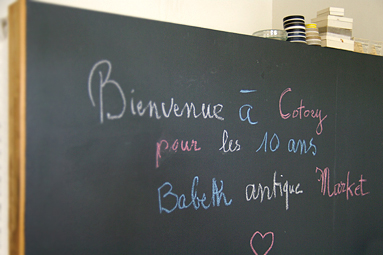 Bienvenue à Cotozy
pour les 10 ans
Babeth antique Market